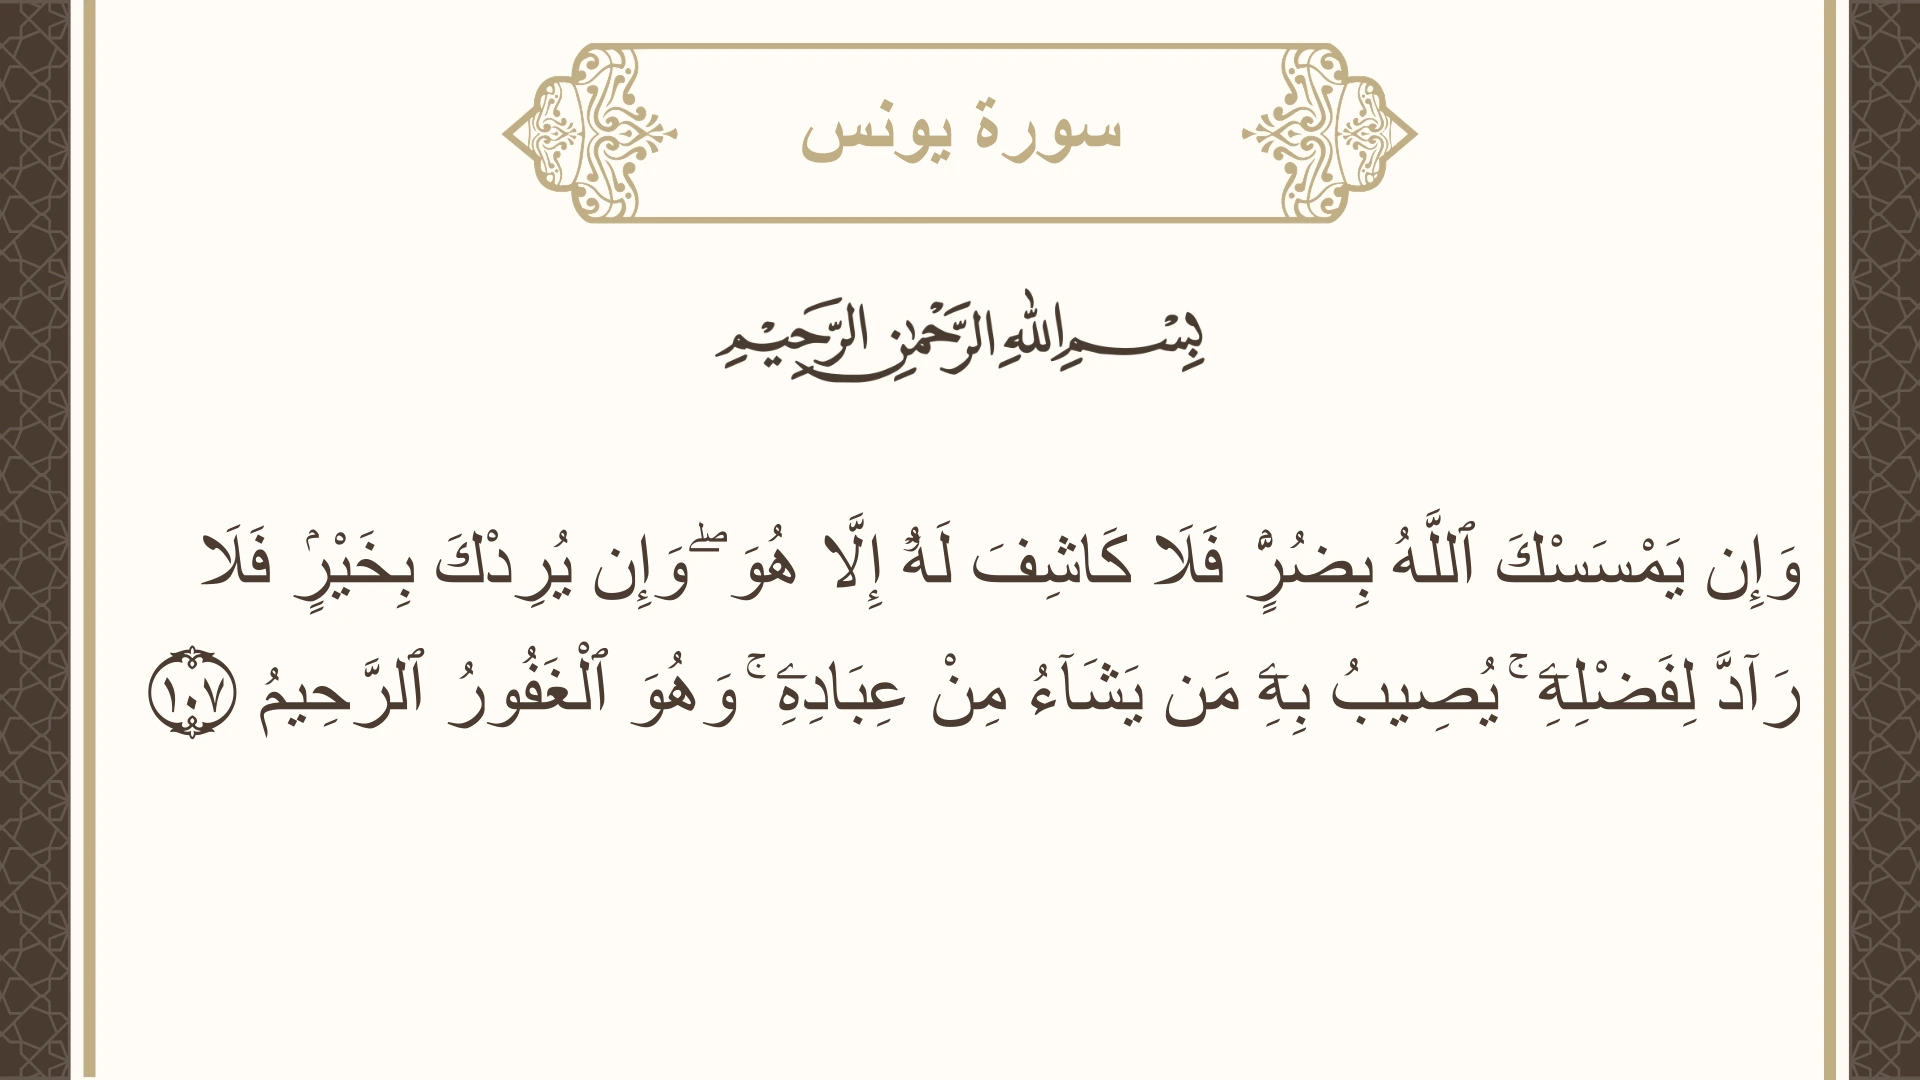 سورة يونس
بِسْمِ اللهِ الرَّحْمٰنِ الرَّحِيْمِ
وَإِن يَمْسَسْكَ ٱللَّهُ بِضُرٍّۢ فَلَا كَاشِفَ لَهُۥٓ إِلَّا هُوَ ۖ وَإِن يُرِدْكَ بِخَيْرٍۢ فَلَا
رَآدَّ لِفَضْلِهِۦ ۚ يُصِيبُ بِهِۦ مَن يَشَآءُ مِنْ عِبَادِهِۦ ۚ وَهُوَ ٱلْغَفُورُ ٱلرَّحِيمُ ١٠٧